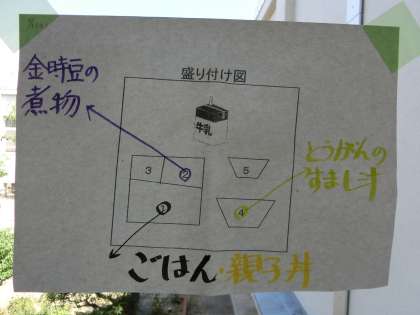 盛り付け図
金時豆の
煮物
牛乳
3
2
5
とうがんの
すまし汁
1
4
ごはん・親子丼